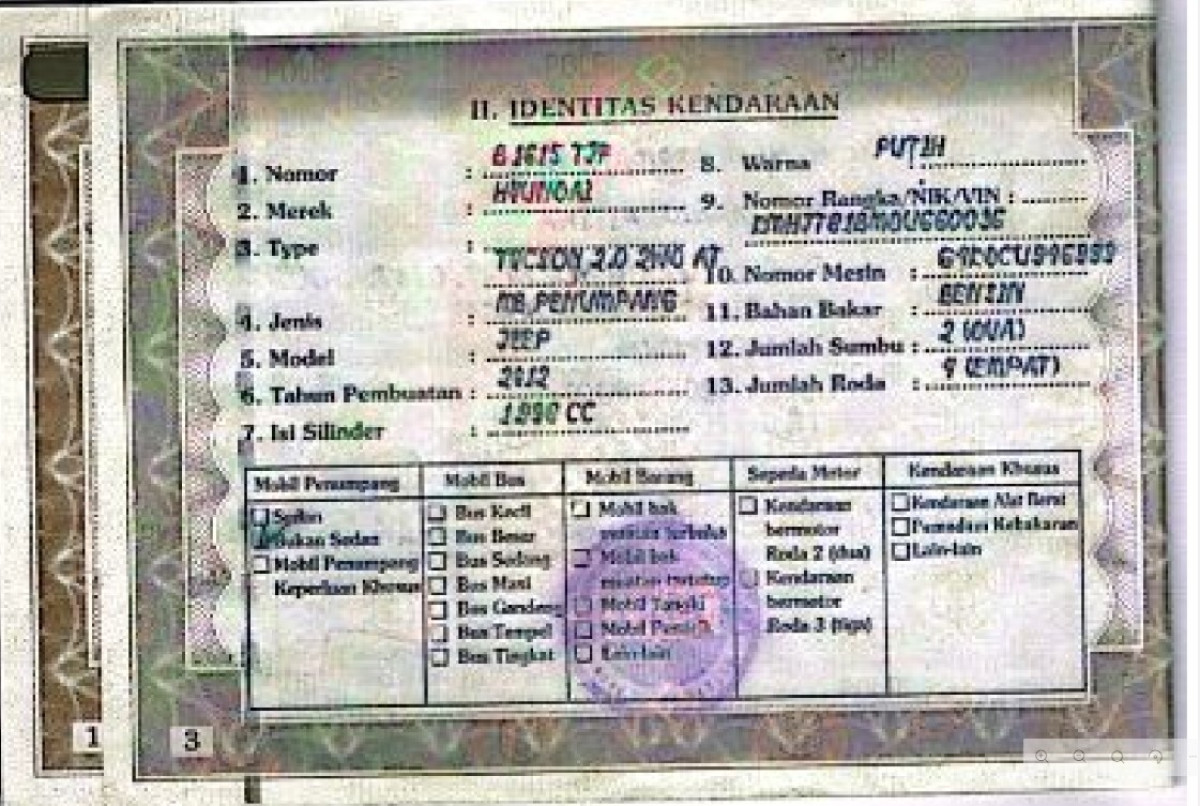 POLRI POLRI POLRI
II. IDENTITAS KENDARAAN
1. Nomor : B 1615 TJP
2. Merek : HYUNDAI
3. Type : TUCSON 2.0 2WD AT
4. Jenis : MB.PENUMPANG
5. Model : JEEP
6. Tahun Pembuatan : 2012
7. Isi Silinder : 1998 CC
8. Warna PUTIH
9. Nomor Rangka/NIK/VIN :
10. Nomor Mesin :
11. Bahan Bakar : BENSIN
12. Jumlah Sumbu : 2 (DUA)
13. Jumlah Roda : 4 (EMPAT)
Mobil Penumpang
Sedan
Bukan Sedan
Mobil Penumpang
Keperluan Khusus
Mobil Bus
Bus Kecil
Bus Besar
Bus Sedang
Bus Maxi
Bus Gandeng
Bus Tempel
Bus Tingkat
Mobil Barang
Mobil bak
muatan terbuka
Mobil bak
muatan tertutup
Mobil Tangki
Mobil Penarik
Lain-lain
Sepeda Motor
Kendaraan
bermotor
Roda 2 (dua)
Kendaraan
bermotor
Roda 3 (tiga)
Kendaraan Khusus
Kendaraan Alat Berat
Pemadam Kebakaran
Lain-lain
1
3